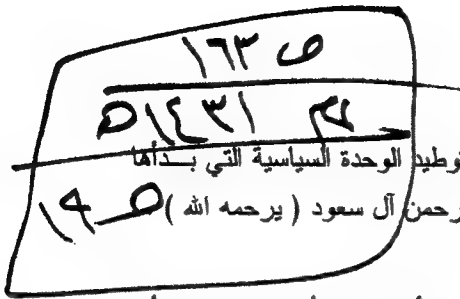 ص ١٦٣
١٤٣١هـ
توطيد الوحدة السياسية التي بـــدأها
رحمن آل سعود ( يرحمه الله ) ص ١٩